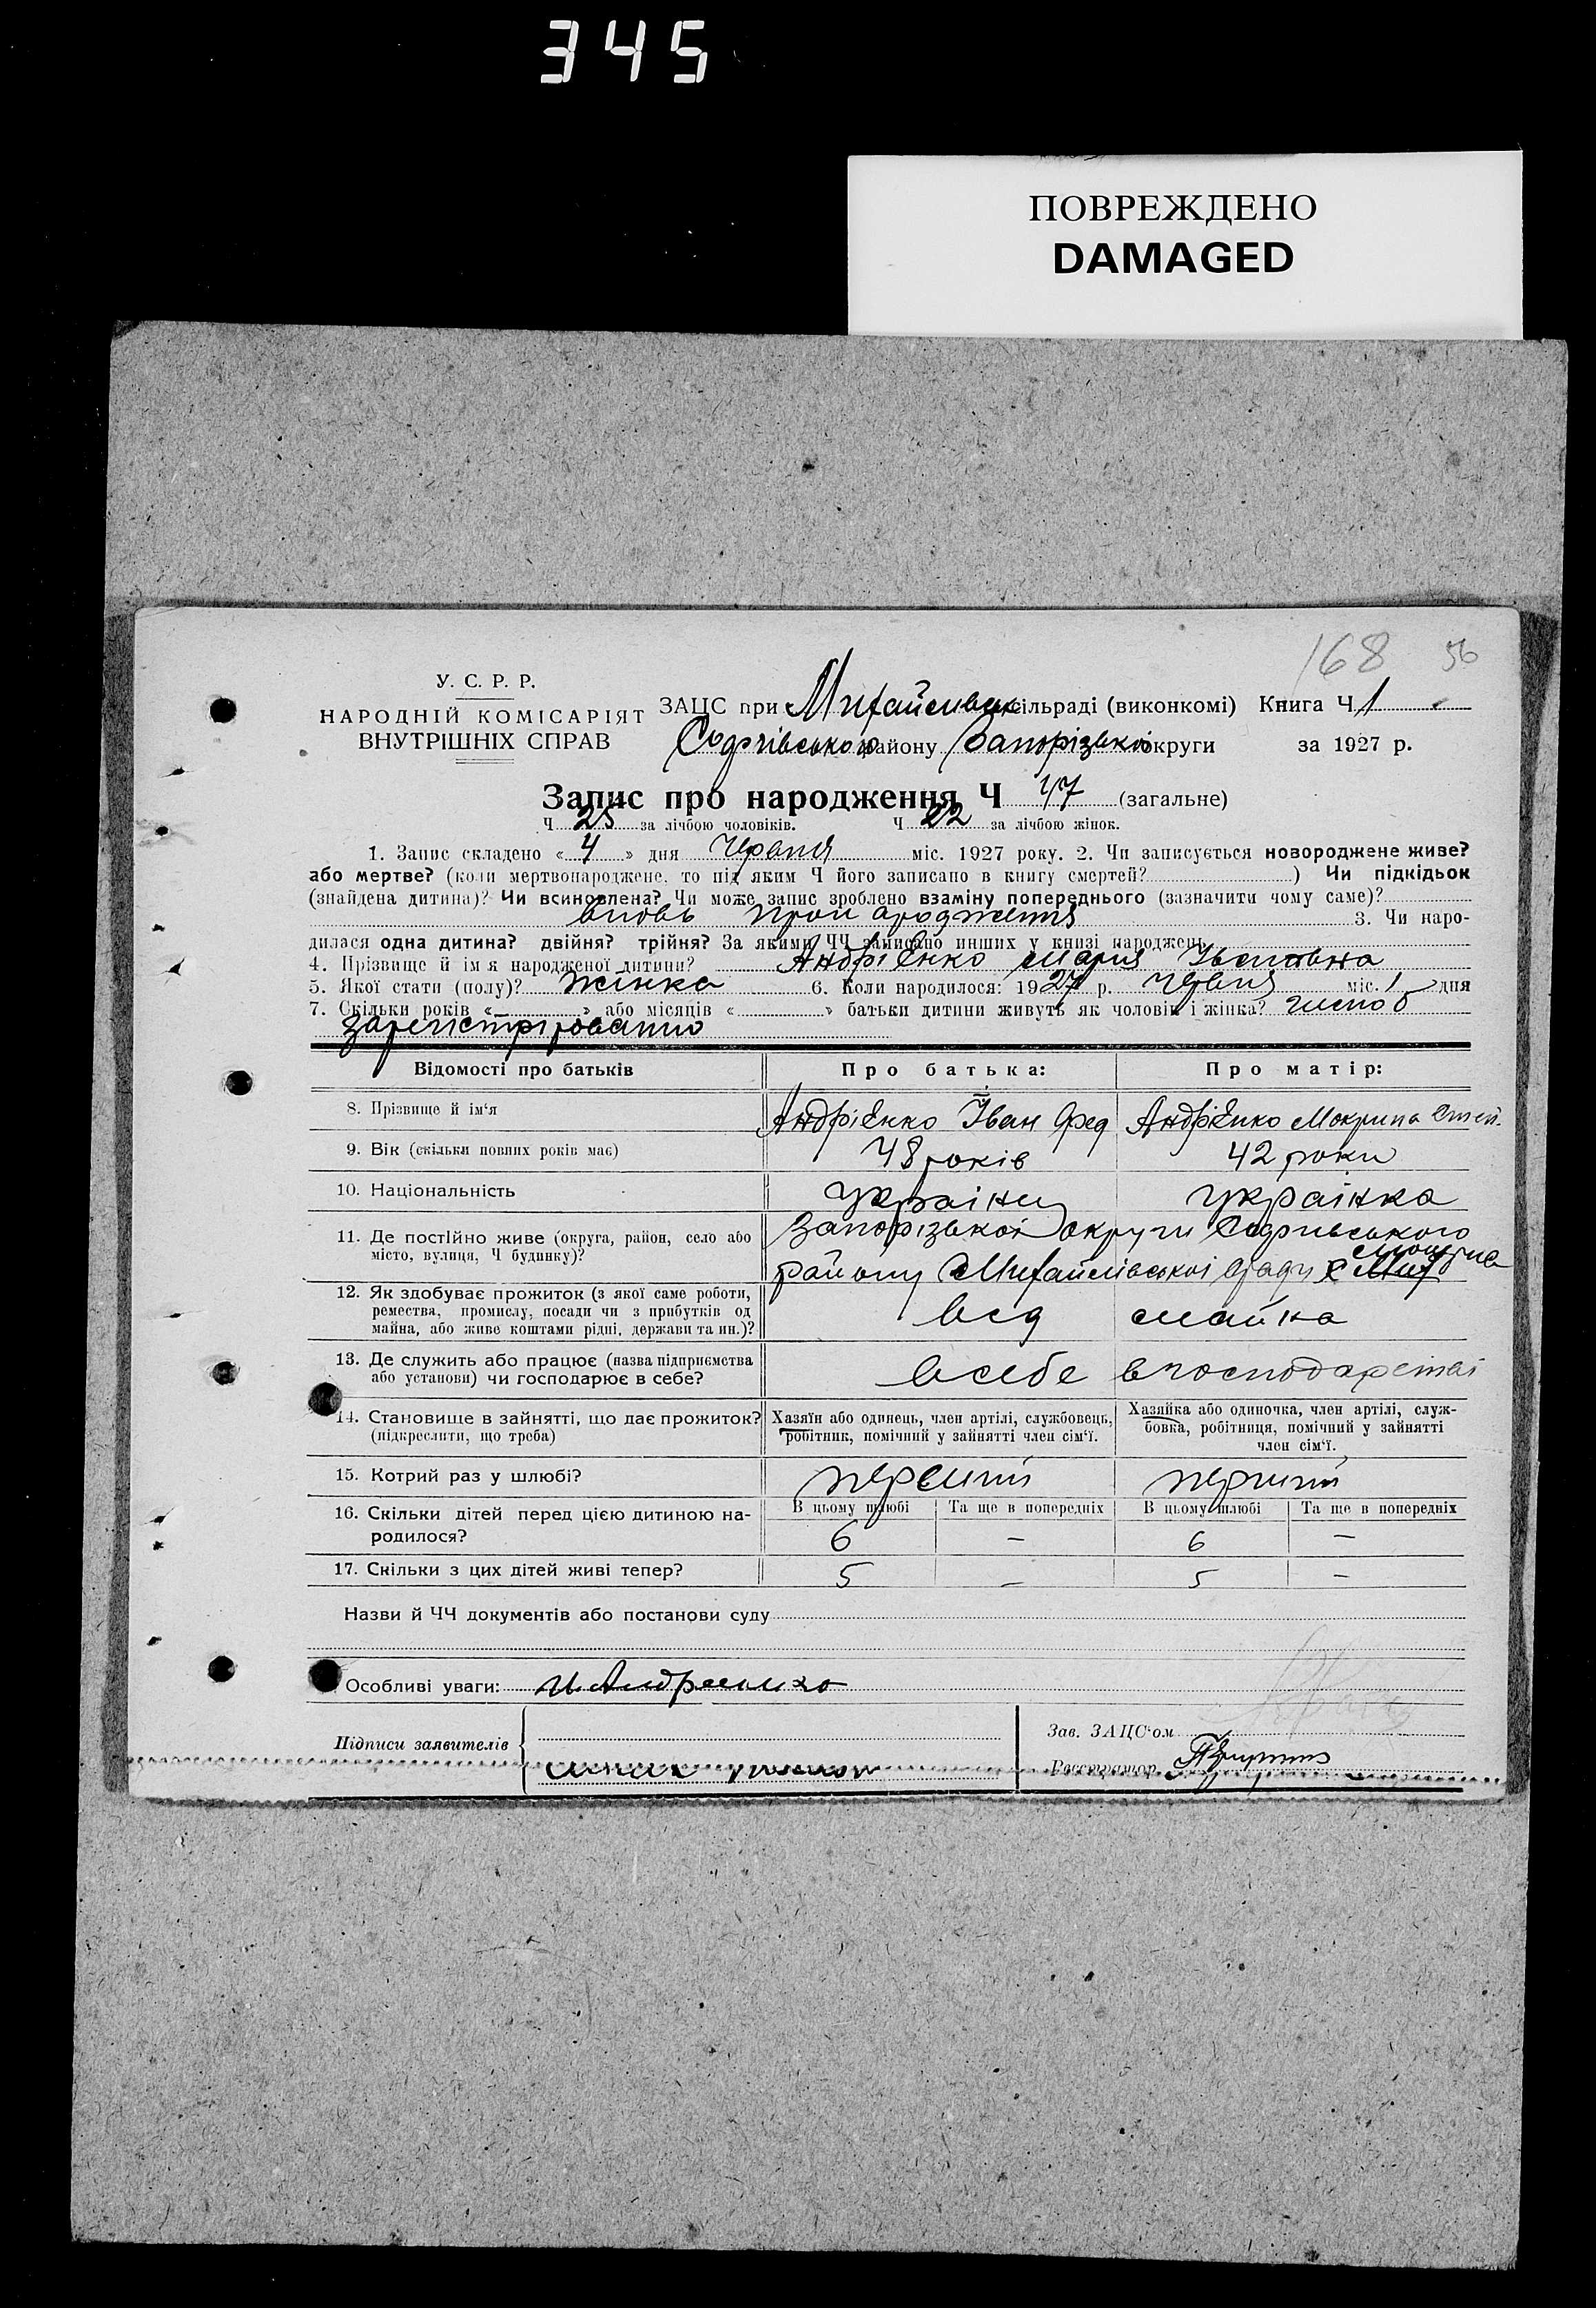 345
ПОВРЕЖДЕНО
DAMAGED
168 56
У. С. Р. Р.
НАРОДНІЙ КОМІСАРІЯТ
ВНУТРІШНІХ СПРАВ
ЗАЦС при Михайлівск сільраді (виконкомі) Книга Ч 1
Софіївського району Запорізької округи за 1927 р.
Запис про народження Ч 47 (загальне)
Ч 25 за лічбою чоловіків. Ч 22 за лічбою жінок.
1. Запис складено « 4 » дня Червня міс. 1927 року. 2. Чи записується новороджене живе?
або мертве? (коли мертвонароджене, то під яким Ч його записано в книгу смертей? ) Чи підкідьок
(знайдена дитина)? Чи всиновлена? Чи може запис зроблено взаміну попереднього (зазначити чому саме)?
вновь 3. Чи наро-
дилася одна дитина? двійня? трійня? За якими ЧЧ записано инших у книзі народжень
4. Прізвище й ім‘я народженої дитини? Андрієнко Мария Івановна
5. Якої стати (полу)? Жінка 6. Коли народилося: 1927 р. Червня міс. 1 дня
7. Скільки років « » або місяців « » батьки дитини живуть як чоловік і жінка?
зарегістрірованно
Відомості про батьків Про батька: Про матір:
8. Прізвище й ім‘я Андрієнко Іван Фед Андрієнко Мокрина Степ.
9. Вік (скільки повних років має) 48 років 42 роки
10. Національність українц українка
11. Де постійно живе (округа, район, село або Запорізької округи Софіевського
місто, вулиця, Ч будинку)? району Михайлівської с/ради с
12. Як здобуває прожиток (з якої саме роботи,
ремества, промислу, посади чи з прибутків од
майна, або живе коштами рідні, держави та ин.)? від майна
13. Де служить або працює (назва підприємства
або установи) чи господарює в себе? в себе в господарстві
14. Становище в зайнятті, що дає прожиток? Хазяїн або одинець, член артілі, службовець, Хазяйка або одиночка, член артілі, служ-
(підкреслити, що треба) робітник, помічний у зайнятті член сім‘ї. бовка, робітниця, помічний у зайнятті
член сім‘ї.
15. Котрий раз у шлюбі? перший перший
16. Скільки дітей перед цією дитиною на- В цьому шлюбі Та ще в попередніх В цьому шлюбі Та ще в попередніх
родилося? 6 — 6 —
17. Скільки з цих дітей живі тепер? 5 — 5 —
Назви й ЧЧ документів або постанови суду
Особливі уваги: И. Андреенко
Підписи заявителів Зав. ЗАЦС‘ом
Реєстратор